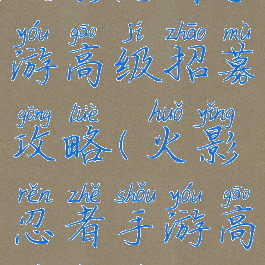 yóu gāo jí zhāo mù
游高级招募
gōng lüè huǒ yǐng
攻略(火影
rěn zhě shǒu yóu gāo
忍者手游高